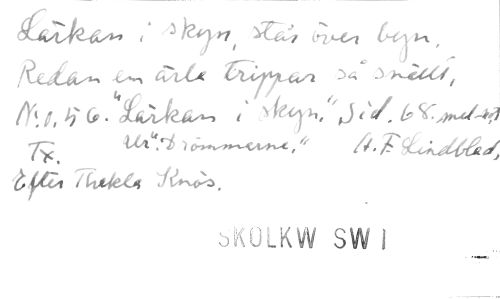 Lärkan i skyn, slår över byn,
Redan en ärla trippar så snällt,
N:o, 56. "Lärkan i skyn." Sid. 68. med not
Tx. ur "Drömmarne," A. F. Lindblad,
Efter Thekla Knös.
SKOLKW SW I